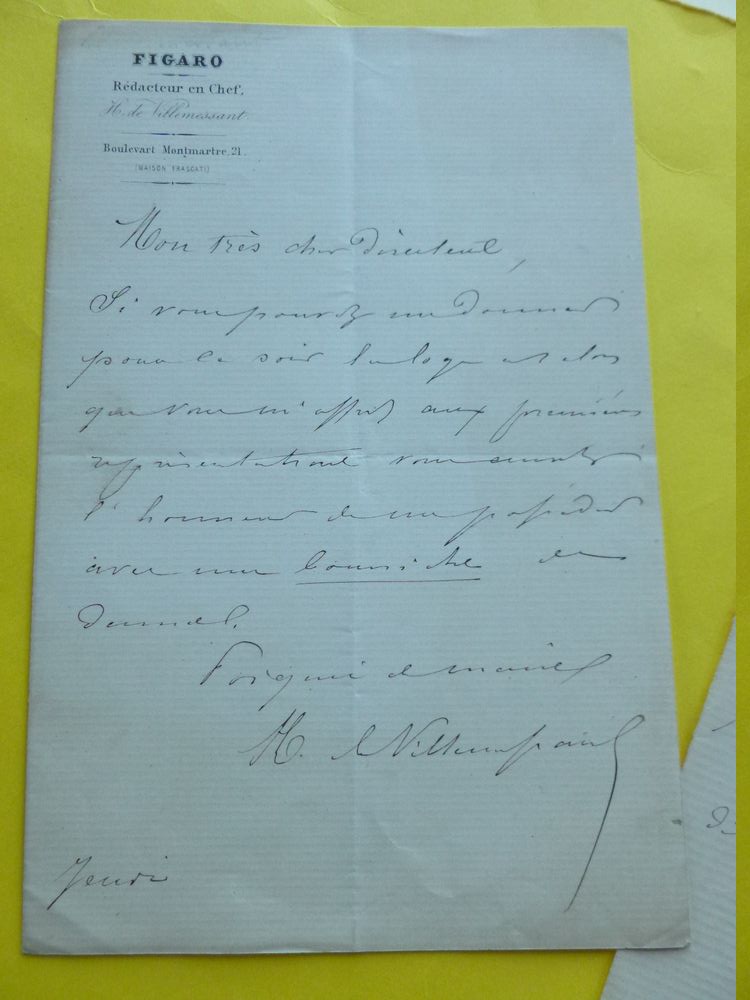 FIGARO
Rédacteur en Chef,
H. de Villemessant
Boulevart Montmartre, 21.
(MAISON FRASCATI)
Mon très cher Directeur,
Si vous pouvez me donner
pour ce soir la loge
que vous m'offrez aux premières
représentations vous aurez
l'honneur de me posséder
avec une des
dames.
H. de Villemessant
Jeudi